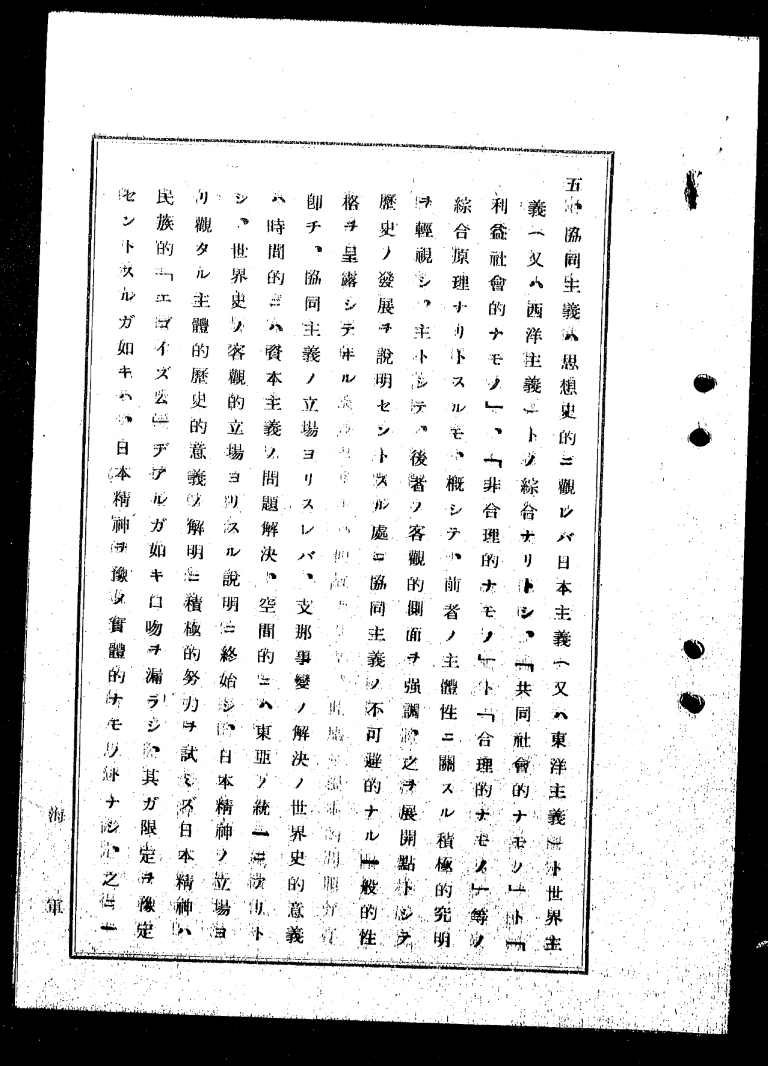 五、協同主義ハ思想史的ニ觀レバ日本主義（又ハ東洋主義）ト世界主
義（又ハ西洋主義）トノ綜合ナリトシ、「共同社會的ナモノ」ト「
利益社會的ナモノ」、「非合理的ナモノ」ト「合理的ナモノ」等ノ
綜合原理ナリトスルモ、概シテ、前者ノ主體性ニ關スル積極的究明
ヲ輕視シ、主トシテ、後者ノ客觀的側面ヲ强調、之ヲ展開點トシテ
歷史ノ發展ヲ說明セントスル處ニ協同主義ノ不可避的ナル一般的性
格ヲ呈露シテヰル
卽チ、協同主義ノ立場ヨリスレバ、支那事變ノ解決ノ世界史的意義
ハ時間的ニハ資本主義ノ問題解決、空間的ニハ東亞ノ統一ニアリト
シ、世界史ノ客觀的立場ヨリスル說明ニ終始シ、日本精神ノ立場ヨ
リ觀タル主體的歷史的意義ノ解明ニ積極的努力ヲ試ミズ日本精神ハ
民族的「エゴイズム」デアルガ如キ口吻ヲ漏ラシ、其ガ限定ヲ豫定
セントスルガ如キハ、日本精神ヲ豫メ實體的ナモノトナシ、之ニ一
海軍